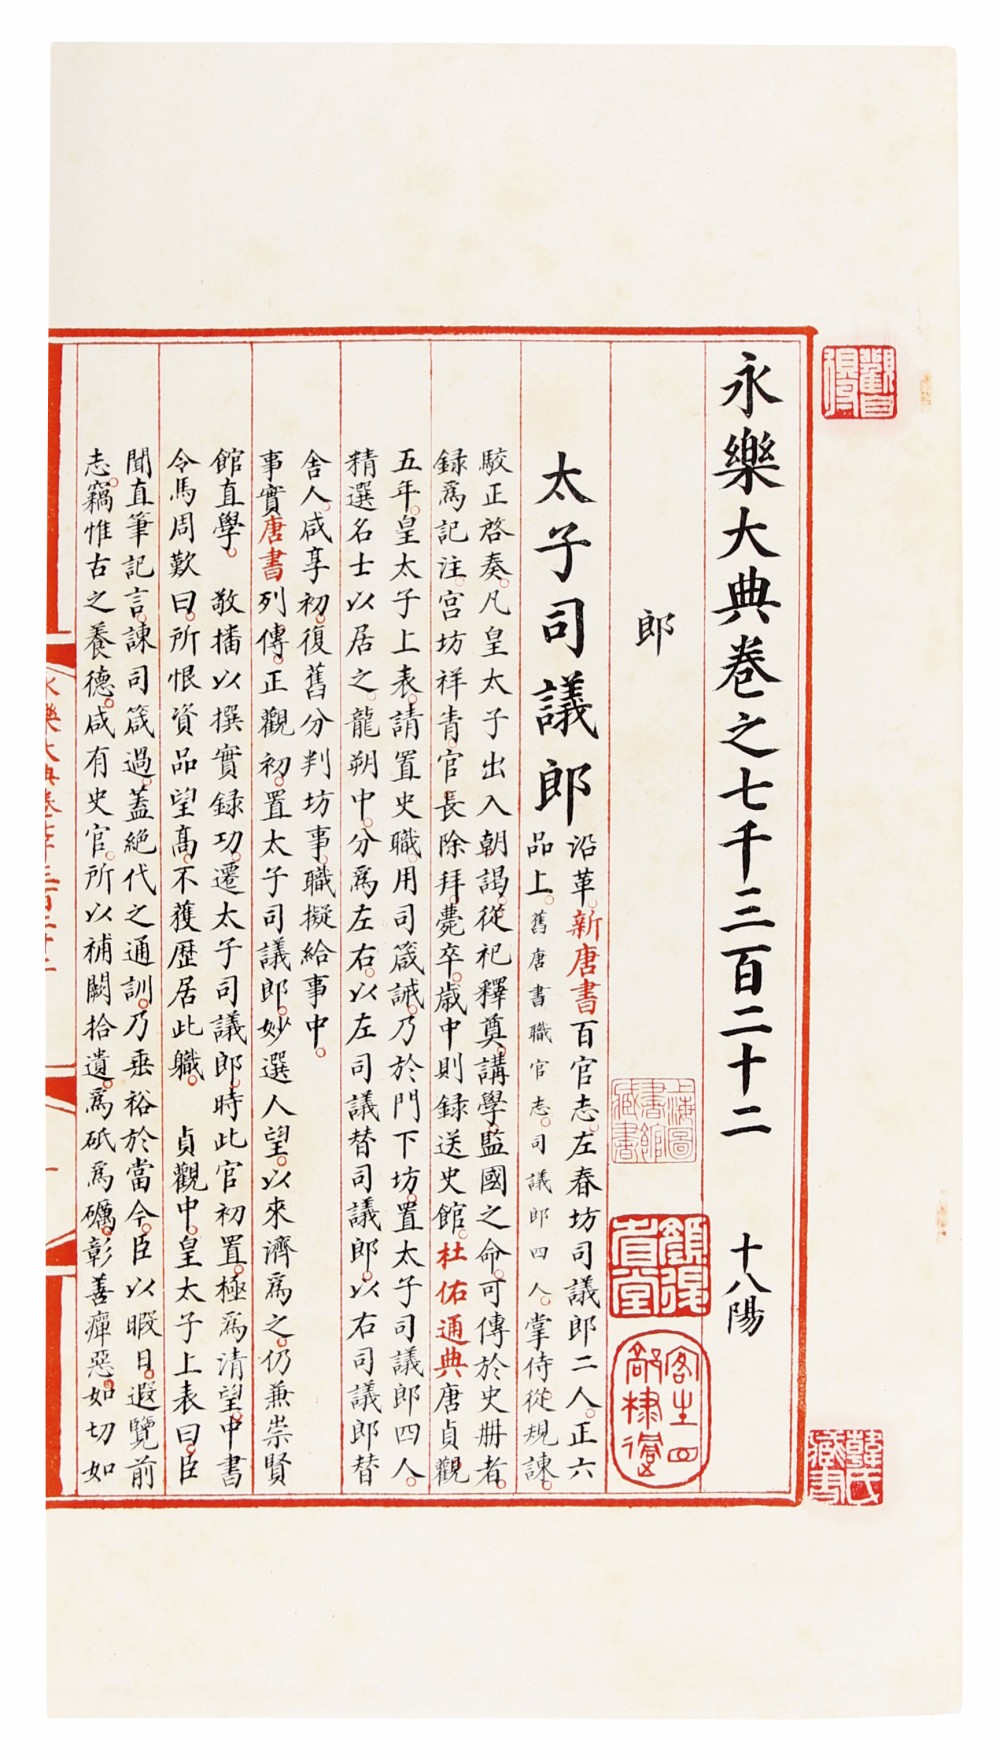 永樂大典卷之七千三百二十二 十八陽
郎
太子司議郎
沿革。新唐書百官志。左春坊司議郎二人。正六
品上。舊唐書職官志。司議郎四人。掌侍從規諫。
駮正啓奏。凡皇太子出入朝謁。從祀釋奠。講學監國之命。可傳於史册者。
録爲記注。宫坊祥眚。官長除拜。薨卒。歲中則録送史館。杜佑通典唐貞觀
五年。皇太子上表。請置史職。用司箴誡。乃於門下坊。置太子司議郎四人。
精選名士以居之。龍朔中。分爲左右。以左司議替司議郎。以右司議郎替
舍人。咸享初。復舊分判坊事。職擬給事中。
事實唐書列傳。正觀初。置太子司議郎。妙選人望。以來濟爲之。仍兼崇賢
館直學。 敬播以撰實録功。遷太子司議郎。時此官初置。極爲清望。中書
令馬周歎曰。所恨資品望高。不獲歷居此職。 貞觀中。皇太子上表曰。臣
聞直筆記言。諫司箴過。蓋絶代之通訓。乃垂裕於當今。臣以暇日。遐覽前
志。竊惟古之養德。咸有史官。所以補闕拾遺。爲砥爲礪。彰善癉惡。如切如
永樂大典卷七千三百二十二
上海圖書館藏書
韓氏藏書